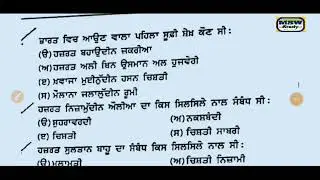 MSW
Study
ਭਾਰਤ ਵਿਚ ਆਉਣ ਵਾਲਾ ਪਹਿਲਾ ਸੂਫ਼ੀ ਸ਼ੇਖ਼ ਕੌਣ ਸੀ :
(ੳ) ਹਜ਼ਰਤ ਬਹਾਉਦੀਨ ਜ਼ਕਰੀਆ
(ਅ) ਹਜ਼ਰਤ ਅਲੀ ਬਿਨ ਉਸਮਾਨ ਅਲ ਹੁਜਵੇਰੀ
(ੲ) ਖ਼ਵਾਜਾ ਮੁਈਨੁੱਦੀਨ ਹਸਨ ਚਿਸ਼ਤੀ
(ਸ) ਮੌਲਾਨਾ ਜਲਾਲੁੱਦੀਨ ਰੂਮੀ
ਹਜ਼ਰਤ ਨਿਜ਼ਾਮੁੱਦੀਨ ਔਲੀਆ ਦਾ ਕਿਸ ਸਿਲਸਿਲੇ ਨਾਲ ਸੰਬੰਧ ਸੀ :
(ੳ) ਸੁਹਰਾਵਰਦੀ (ਅ) ਨਕਸ਼ਬੰਦੀ
(ੲ) ਚਿਸ਼ਤੀ (ਸ) ਚਿਸ਼ਤੀ ਸਾਬਰੀ
ਹਜ਼ਰਤ ਸੁਲਤਾਨ ਬਾਹੂ ਦਾ ਸੰਬੰਧ ਕਿਸ ਸਿਲਸਿਲੇ ਨਾਲ ਸੀ :
(ੳ) ਮਲਾਮਤੀ (ਅ) ਚਿਸ਼ਤੀ ਨਿਜ਼ਾਮੀ